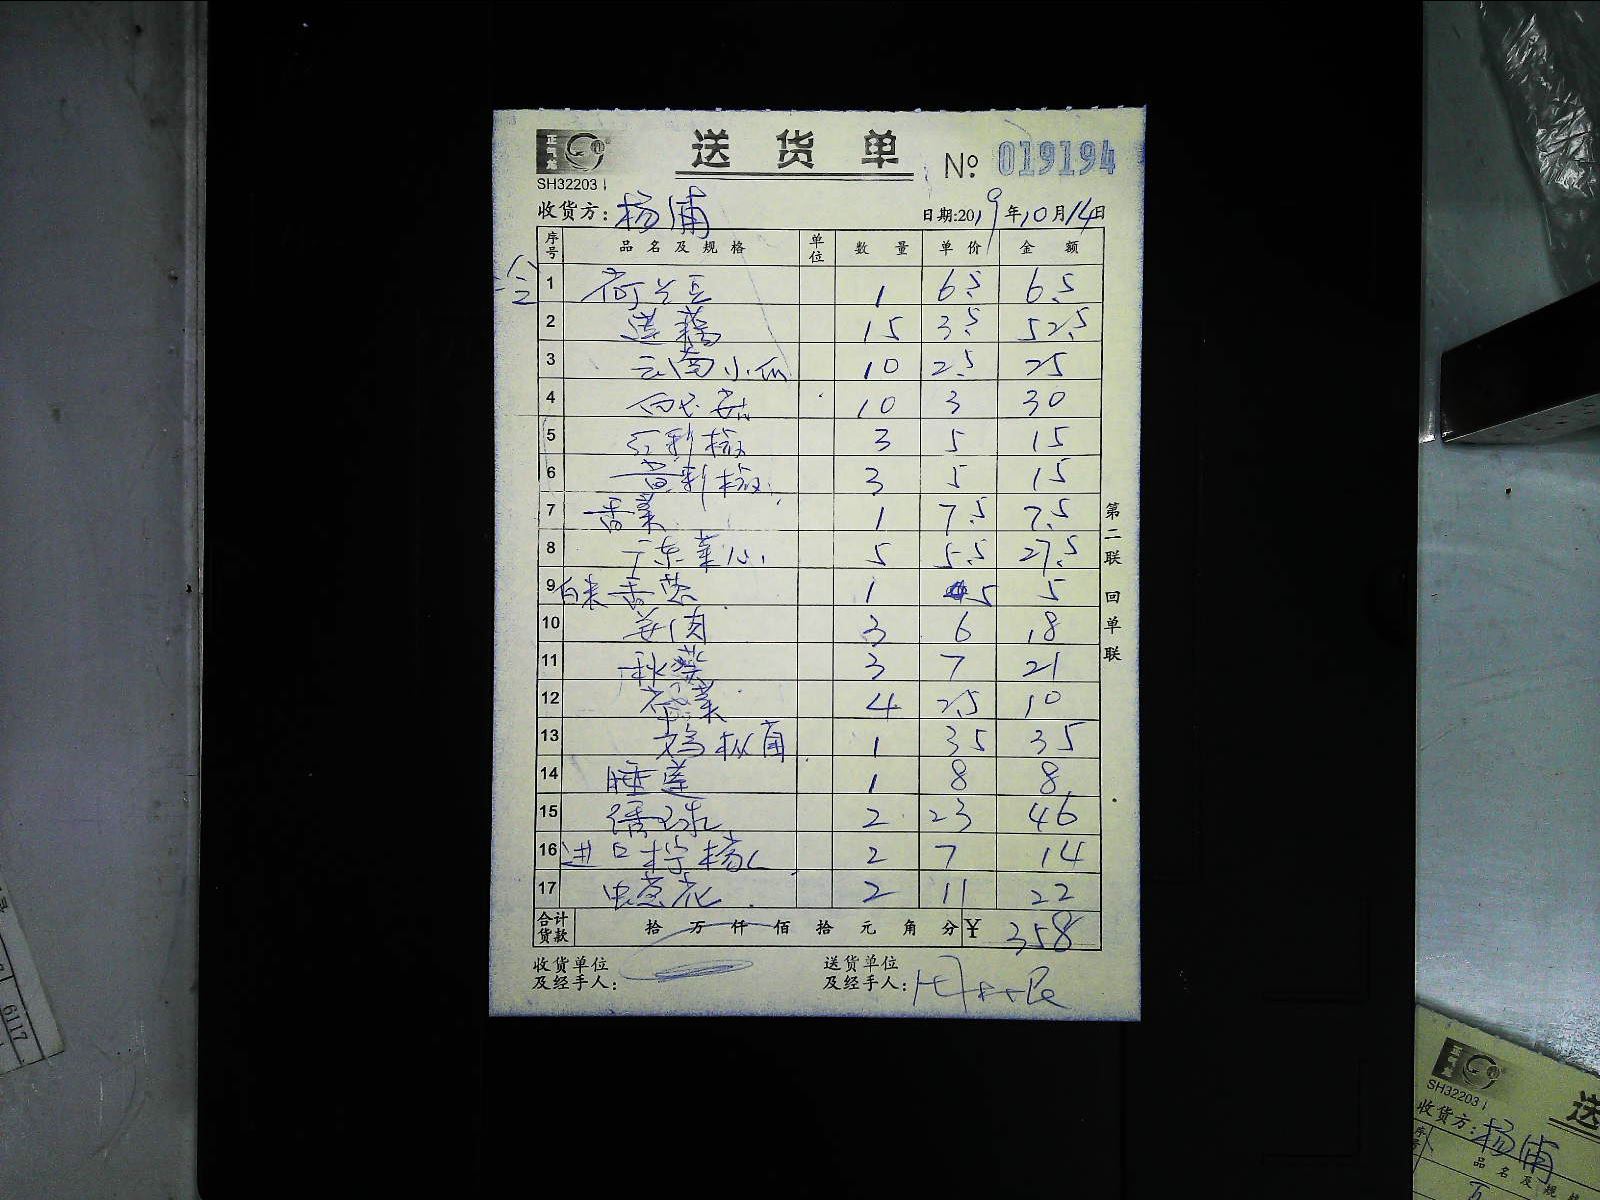 正气龙
送货单
No 019194
SH32203
收货方: 杨浦
日期:2019年10月14日
序号 品名及规格 单位 数量 单价 金额
冷
1 荷兰豆 1 6.5 6.5
2 莲藕 15 3.5 52.5
3 云南小瓜 10 2.5 25
4 白玉菇 10 3 30
5 红彩椒 3 5 15
6 黄彩椒 3 5 15
7 香菜 1 7.5 7.5
8 广东菜心 5 5.5 27.5
9 香葱 1 5 5
10 姜肉 3 6 18
11 秋葵 3 7 21
12 4 2.5 10
13 鸡枞菌 1 35 35
14 睡莲 1 8 8
15 绣球 2 23 46
16 进口柠檬 2 7 14
17 虫草花 2 11 22
合计货款 拾 万 仟 佰 拾 元 角 分 ¥ 358
收货单位及经手人:
送货单位及经手人:
第二联 回单联
6117
正气龙
SH32203
送
收货方: 杨浦
序号 品名及规格